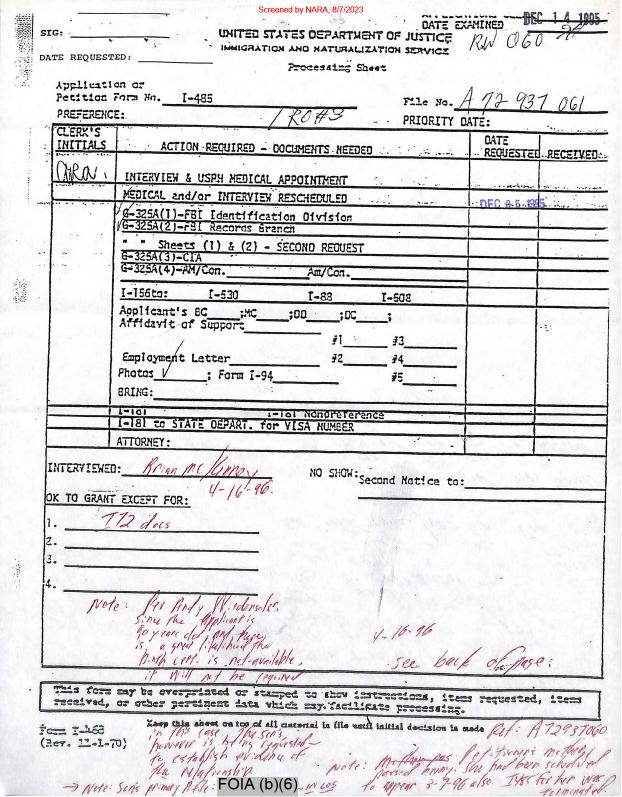 Screened by NARA, 8/7/2023
DATE EXAMINED DEC 14 1995
SIG:
UNITED STATES DEPARTMENT OF JUSTICE
IMMIGRATION AND NATURALIZATION SERVICE
DATE REQUESTED:
Processing Sheet
Application or
Petition Form No. I-485
File No. A 72 937 061
PREFERENCE: IR0#3
PRIORITY DATE:
CLERK'S INITIALS
ACTION REQUIRED - DOCUMENTS NEEDED
DATE REQUESTED
RECEIVED
INTERVIEW & USPH MEDICAL APPOINTMENT
MEDICAL and/or INTERVIEW RESCHEDULED
G-325A(1)-FBI Identification Division
G-325A(2)-FBI Records Branch
" " Sheets (1) & (2) - SECOND REQUEST
G-325A(3)-CIA
G-325A(4)-AM/Con. Am/Con.
I-156to: I-530 I-88 I-508
Applicant's BC ;MC ;DD ;DC ;
Affidavit of Support
#1 #3
Employment Letter #2 #4
Photos ✓ ; Form I-94 #5
BRING:
I-181 I-181 Nonpreference
I-181 to STATE DEPART. for VISA NUMBER
ATTORNEY:
INTERVIEWED: Brian
4-16-96.
NO SHOW:
Second Notice to:
OK TO GRANT EXCEPT FOR:
1. I72 docs
2.
3.
4.
Note: Per Andy
since the applicant is
90 years old, and there
is a great likelihood the
birth cert. is not available,
it will not be required
4-16-96
see back of page:
This form may be overprinted or stamped to show instructions, items requested, items
received, or other pertinent data which may facilitate processing.
Form I-468
(Rev. 11-1-70)
Keep this sheet on top of all material in file until initial decision is made
Ref: A72937060
in this case. The son's,
however is being requested
to establish evidence of
the relationship
Note:
passed away. She had been scheduled
to appear 3-7-96 also.
terminated.
→ Note: Son's primary A file
FOIA (b)(6)
in LOS